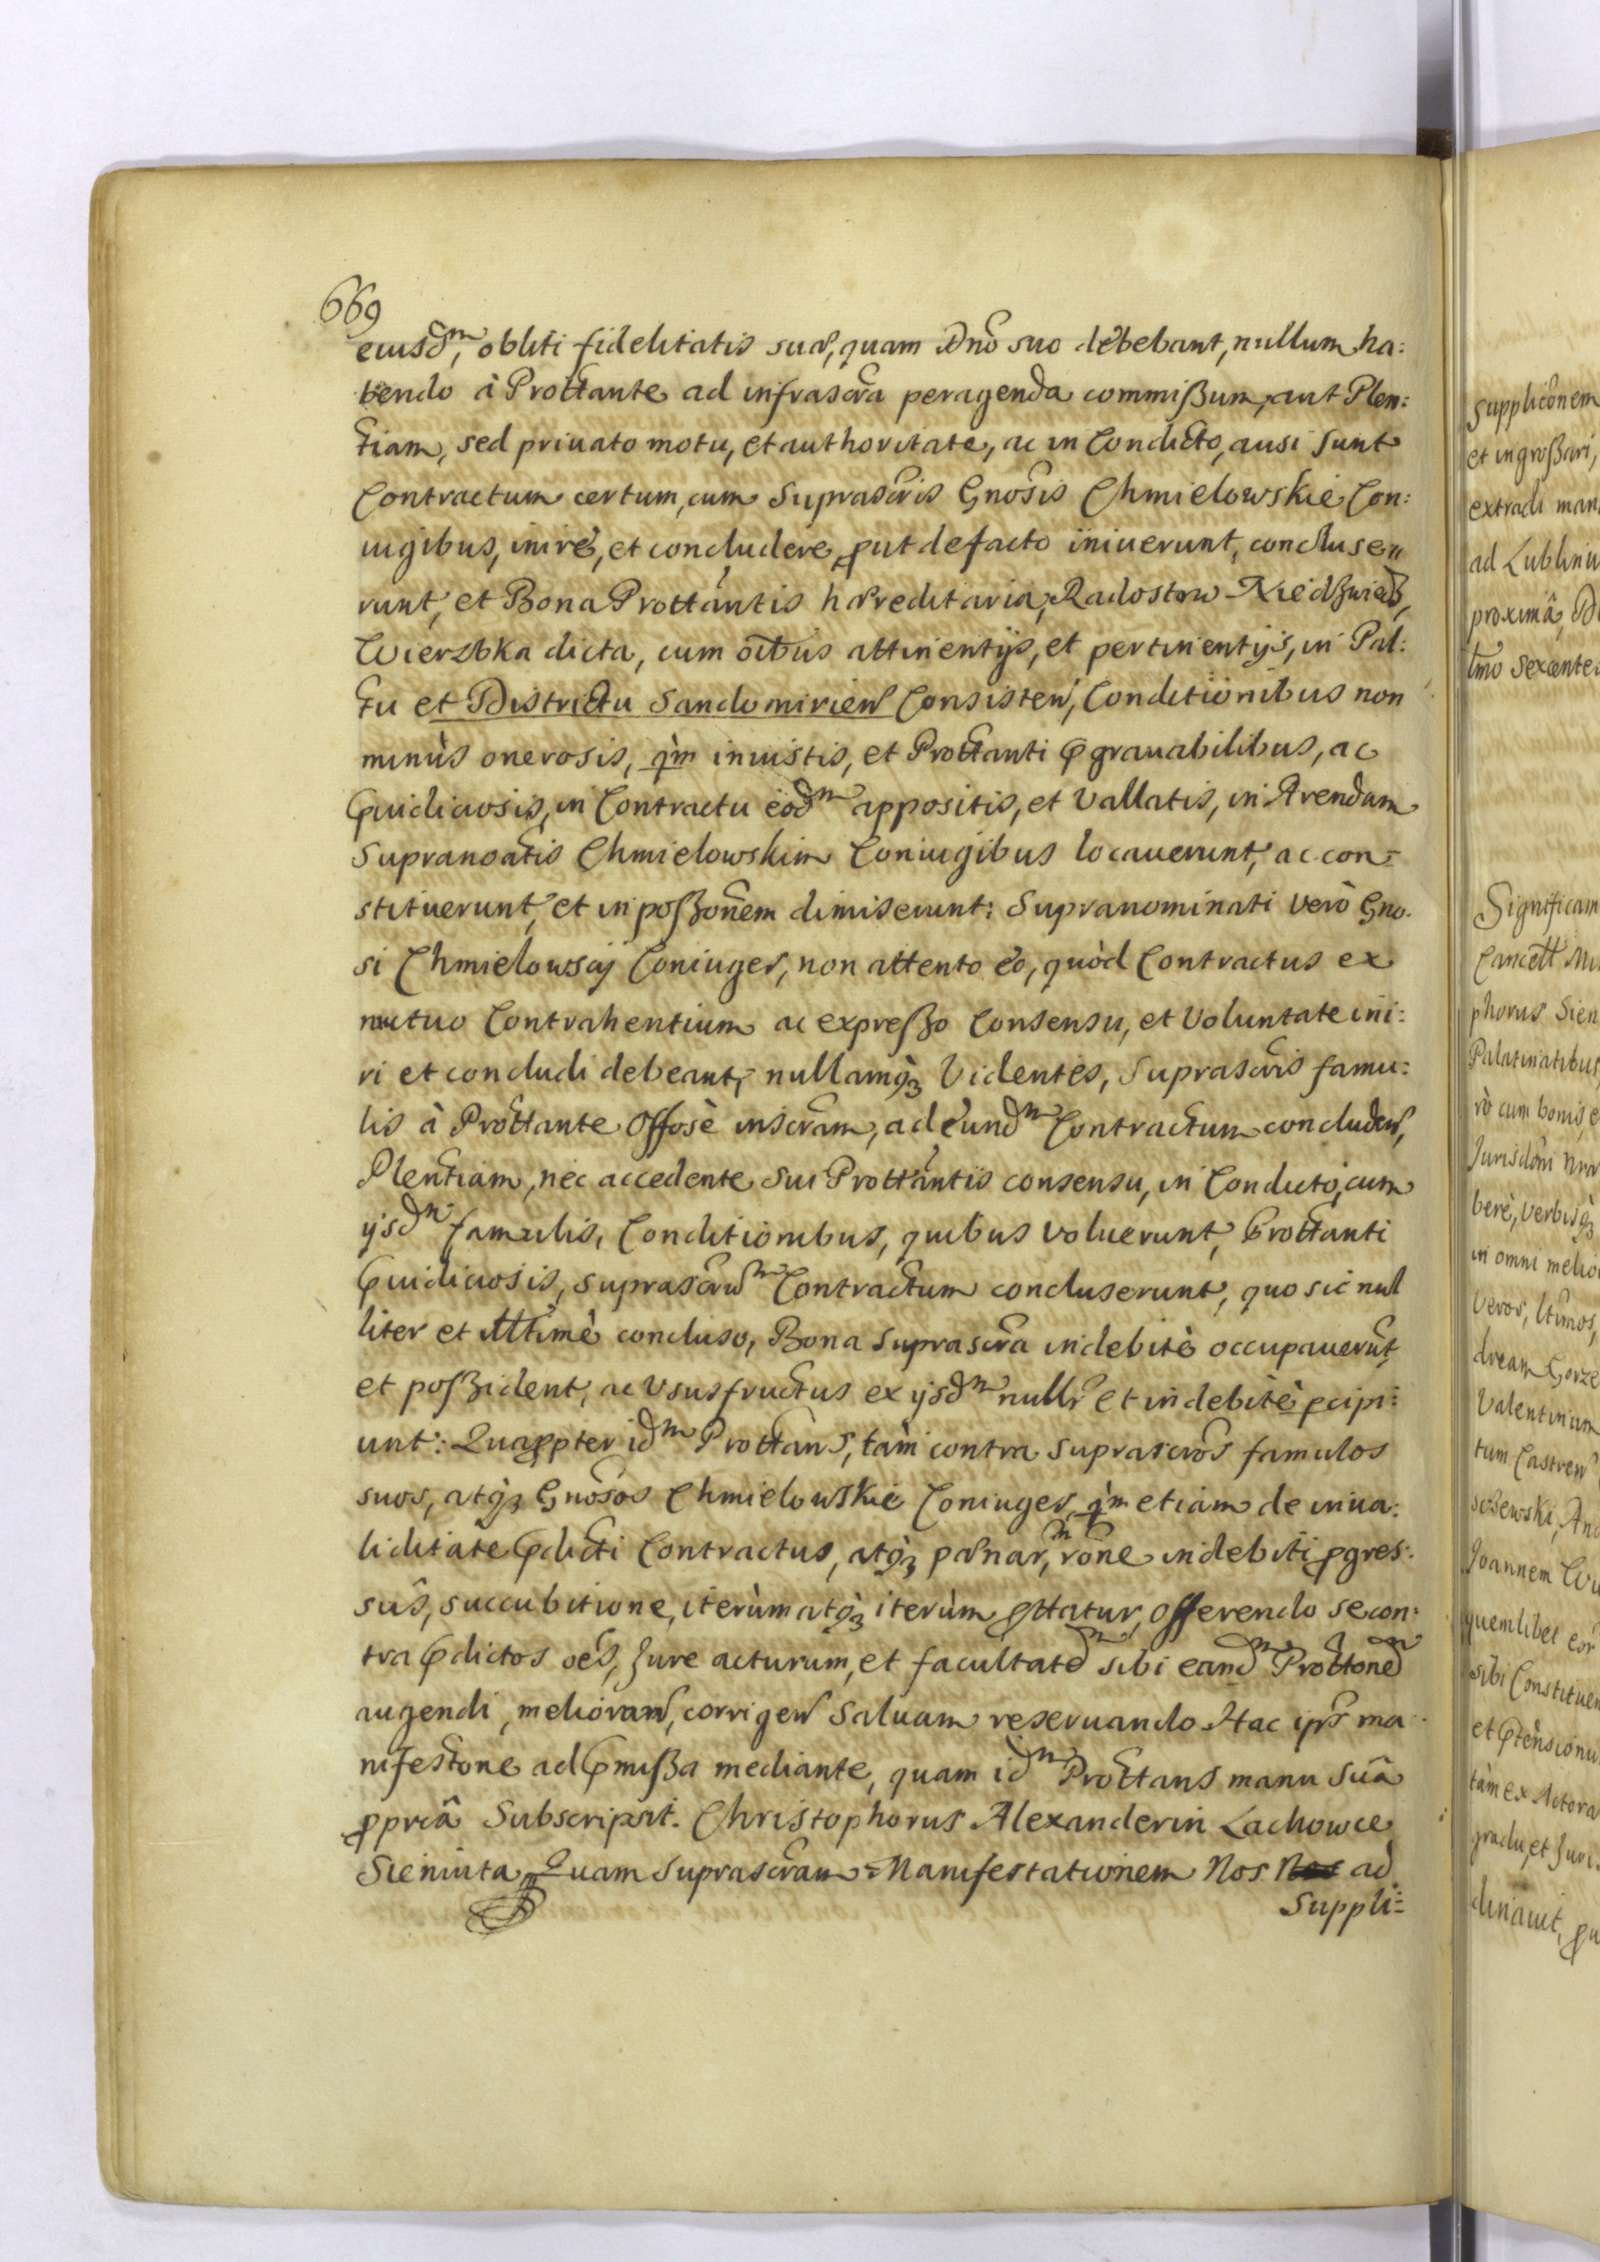 669
eiusd̃m, obliti fidelitatis suæ, quam Dño suo debebant, nullum ha:
bendo à Prottante ad infrascr̃a peragenda commißum, aut Plen:
tiam, sed priuato motu, et authoritate, ac in Condicto, ausi sunt
Contractum certum, cum Suprascr̃is Gnosis Chmielowskie Con:
iugibus, inire, et concludere, ꝓut defacto iniuerunt, concluse„
runt, et Bona Prottantis hæreditaria, Radostow
Wierzbka dicta, cum oĩbus attinentijs, et pertinentijs, in Pal:
tu et Districtu Sandomirien̄ Consisten̄, Conditionibus non
minùs onerosis, q̀m iniustis, et Prottanti p̃grauabilibus, ac
p̃iudiciosis, in Contractu eod̃m appositis, et Vallatis, in Arendam
Supranoatis Chmielowskim Coniugibus locauerunt, ac con=
stituerunt, et in poßonem dimiserunt: Supranominati verò Gno.
si Chmielowscij Coniuges, non attento eo, quòd Contractus ex
mutuo Contrahentium ac expreßo Consensu, et Voluntate ini:
ri et concludi debeant, nullamq̀ꝫ Videntes, Suprascr̃is famu:
lis à Prottante Offosè inscr̃am, ad eund̃m Contractum concluden̄,
Plentiam, nec accedente sui Prottantis consensu, in Condicto, cum
ijsd̃m famulis, Conditionibus, quibus voluerunt, Prottanti
p̃iudiciosis, suprascr̃ũm Contractum concluserunt, quo sic nul
liter et illttimè concluso, Bona Suprascr̃a indebitè occupauerũt,
et poßident, ac Vsusfructus ex ijsd̃m nullr̃ et indebitè ꝑcipi:
unt: Quaꝓpter id̃m Prottans, tàm contra suprascr̃os famulos
suos, atq̀ꝫ Gnosos Chmielowskie Coniuges, q̀m etiam de inua:
liditate p̃dicti Contractus, atq̀ꝫ pænar̃, rõne indebiti ꝓgres:
sûs, succubitione, iterùm atq̀ꝫ iterùm ꝓttatur, Offerendo se con:
tra p̃dictos oẽs, Jure acturum, et facultatẽm sibi eand̃m Prottonẽm
augendi, melioran̄, corrigen̄ Saluam reseruando. Hac ipr̃ ma
nifestone ad p̃mißa mediante, quam id̃m Prottans manu suâ
ꝓpriâ Subscripsit. Christophorus Alexander in Lachowce
Sieniuta. Quam suprascr̃am Manifestationem Nos ad
Suppli=

supplic̃onem
et ingroßari,
extradi man
ad Lublini
proximâ, D
lmo sexcente
Significam
Cancell
phorus Sien
Palatinatibus
rò cum bonis, e
Jurisdõni nr̃a
berè, verbisq̀ꝫ
in omni melio
Veros, lttimos,
dream Gorze
Valentinum
tum Castren̄
Joannem
quemlibet eor̃
sibi Constituen
et p̃tensionu
tàm ex Actora
gradu, et Juri
clinauit, ꝓu